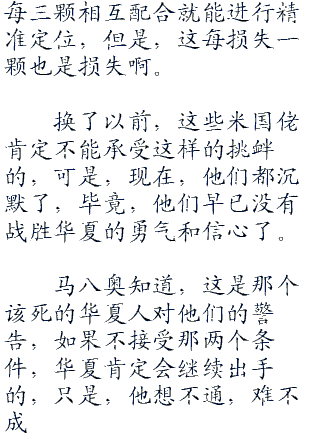 每三颗相互配合就能进行精
准定位，但是，这每损失一
颗也是损失啊。
换了以前，这些米国佬
肯定不能承受这样的挑衅
的，可是，现在，他们都沉
默了，毕竟，他们早已没有
战胜华夏的勇气和信心了。
马八奥知道，这是那个
该死的华夏人对他们的警
告，如果不接受那两个条
件，华夏肯定会继续出手
的，只是，他想不通，难不
成